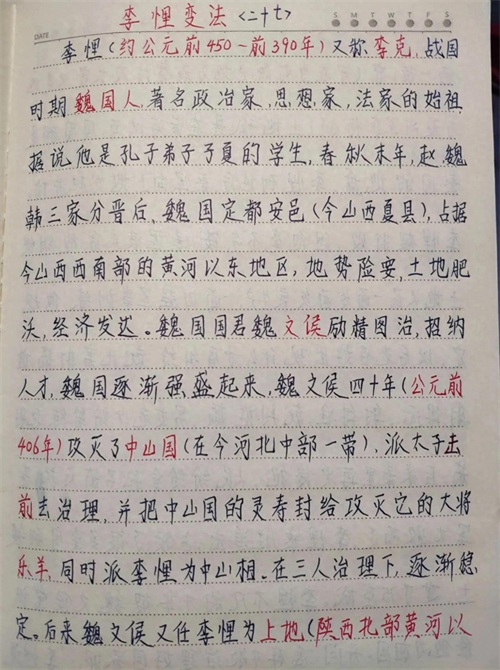 李悝变法<二十七>
DATE S M T W T F S
李悝(约公元前450-前390年)又称李克,战国
时期魏国人,著名政治家,思想家,法家的始祖.
据说他是孔子弟子子夏的学生,春秋末年,赵.魏
韩三家分晋后.魏国定都安邑(今山西夏县),占据
今山西西南部的黄河以东地区,地势险要.土地肥
沃,经济发达。魏国国君魏文侯励精图治,招纳
人才,魏国逐渐强盛起来,魏文侯四十年(公元前
406年)攻灭了中山国(在今河北中部一带),派太子击
前去治理,并把中山国的灵寿封给攻灭它的大将
乐羊,同时派李悝为中山相。在三人治理下,逐渐稳
定。后来魏文侯又任李悝为上地(陕西北部黄河以